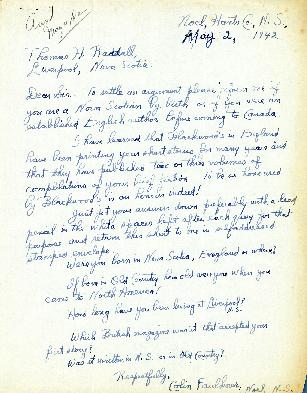 Noel, Hants Co., N.S.
May 2, 1942.
Thomas H. Raddall,
Liverpool, Nova Scotia.
Dear Sir: To settle an argument please, inform me if
you are a Nova Scotian by birth or if you were an
established English author before coming to Canada.
I have learned that Blackwood's in England
have been printing your short stories for many years and
that they have published two or three volumes of
compilations of your To be so honored
by Blackwood's is an honor indeed!
Just jot your answers down preferably with a lead
pencil in the white spaces left after each query for that
purpose and return this sheet to me in self-addressed
stamped envelope.
Were you born in Nova Scotia, England or where?
If born in Old Country how old were you when you
came to North America?
How long have you been living at Liverpool?
N.S.
Which British magazine was it that accepted your
first story?
Was it written in N.S. or in Old Country?
Respectfully,
Colin Noel, N.S.